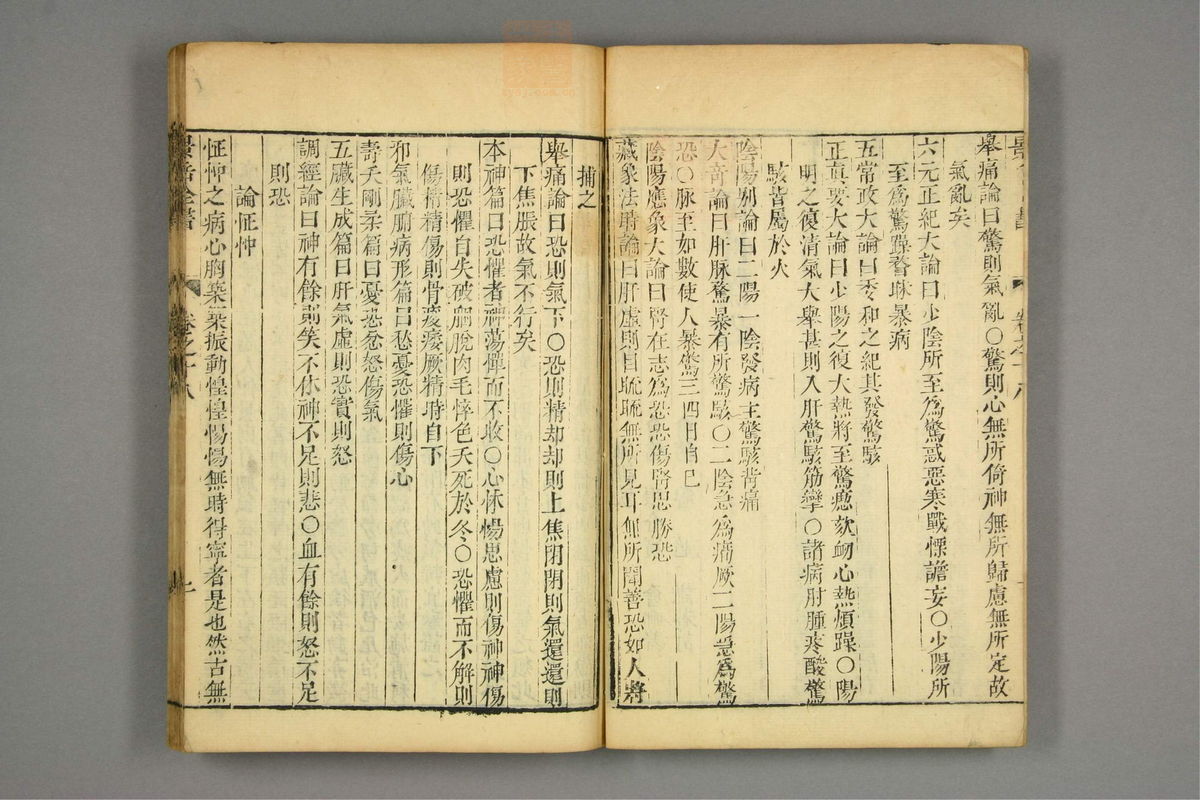 舉痛論曰驚則氣亂○驚則心無所倚神無所歸慮無所定故
氣亂矣
六元正紀大論曰少陰所至爲驚惑惡寒戰慄譫妄○少陽所
至爲驚躁瞀昧暴病
五常政大論曰委和之紀其發驚駭
至真要大論曰少陽之復大熱將至驚瘛欬衂心熱煩躁○陽
明之復清氣大舉甚則入肝驚駭筋攣○諸病胕腫疼酸驚
駭皆屬於火
陰陽别論曰二陽一陰發病主驚駭背痛
大奇論曰肝脉騖暴有所驚駭○二陰急爲癇厥二陽急爲驚
恐○脉至如數使人暴驚三四日自已
陰陽應象大論曰腎在志爲恐恐傷腎思勝恐
藏象法時論曰肝虛則目䀮䀮無所見耳無所聞善恐如人將
捕之
舉痛論曰恐則氣下○恐則精却却則上焦閉閉則氣還還則
下焦脹故氣不行矣
本神篇曰恐懼者神蕩憚而不收○心怵惕思慮則傷神神傷
則恐懼自失破䐃脫肉毛悴色夭死於冬○恐懼而不解則
傷精精傷則骨痠痿厥精時自下
邪氣臟腑病形篇曰愁憂恐懼則傷心
壽夭剛柔篇曰憂恐忿怒傷氣
五臟生成篇曰肝氣虛則恐實則怒
調經論曰神有餘則笑不休神不足則悲○血有餘則怒不足
則恐
論怔忡
怔忡之病心胸築築振動惶惶惕惕無時得寧者是也然古無
景岳全書
卷之十八